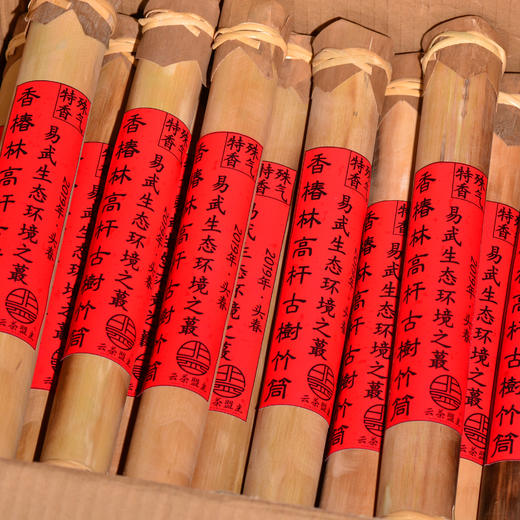 特香 殊气
香椿林高杆古樹竹筒
易武生态环境之蕞
2019年·头春
云茶盟主